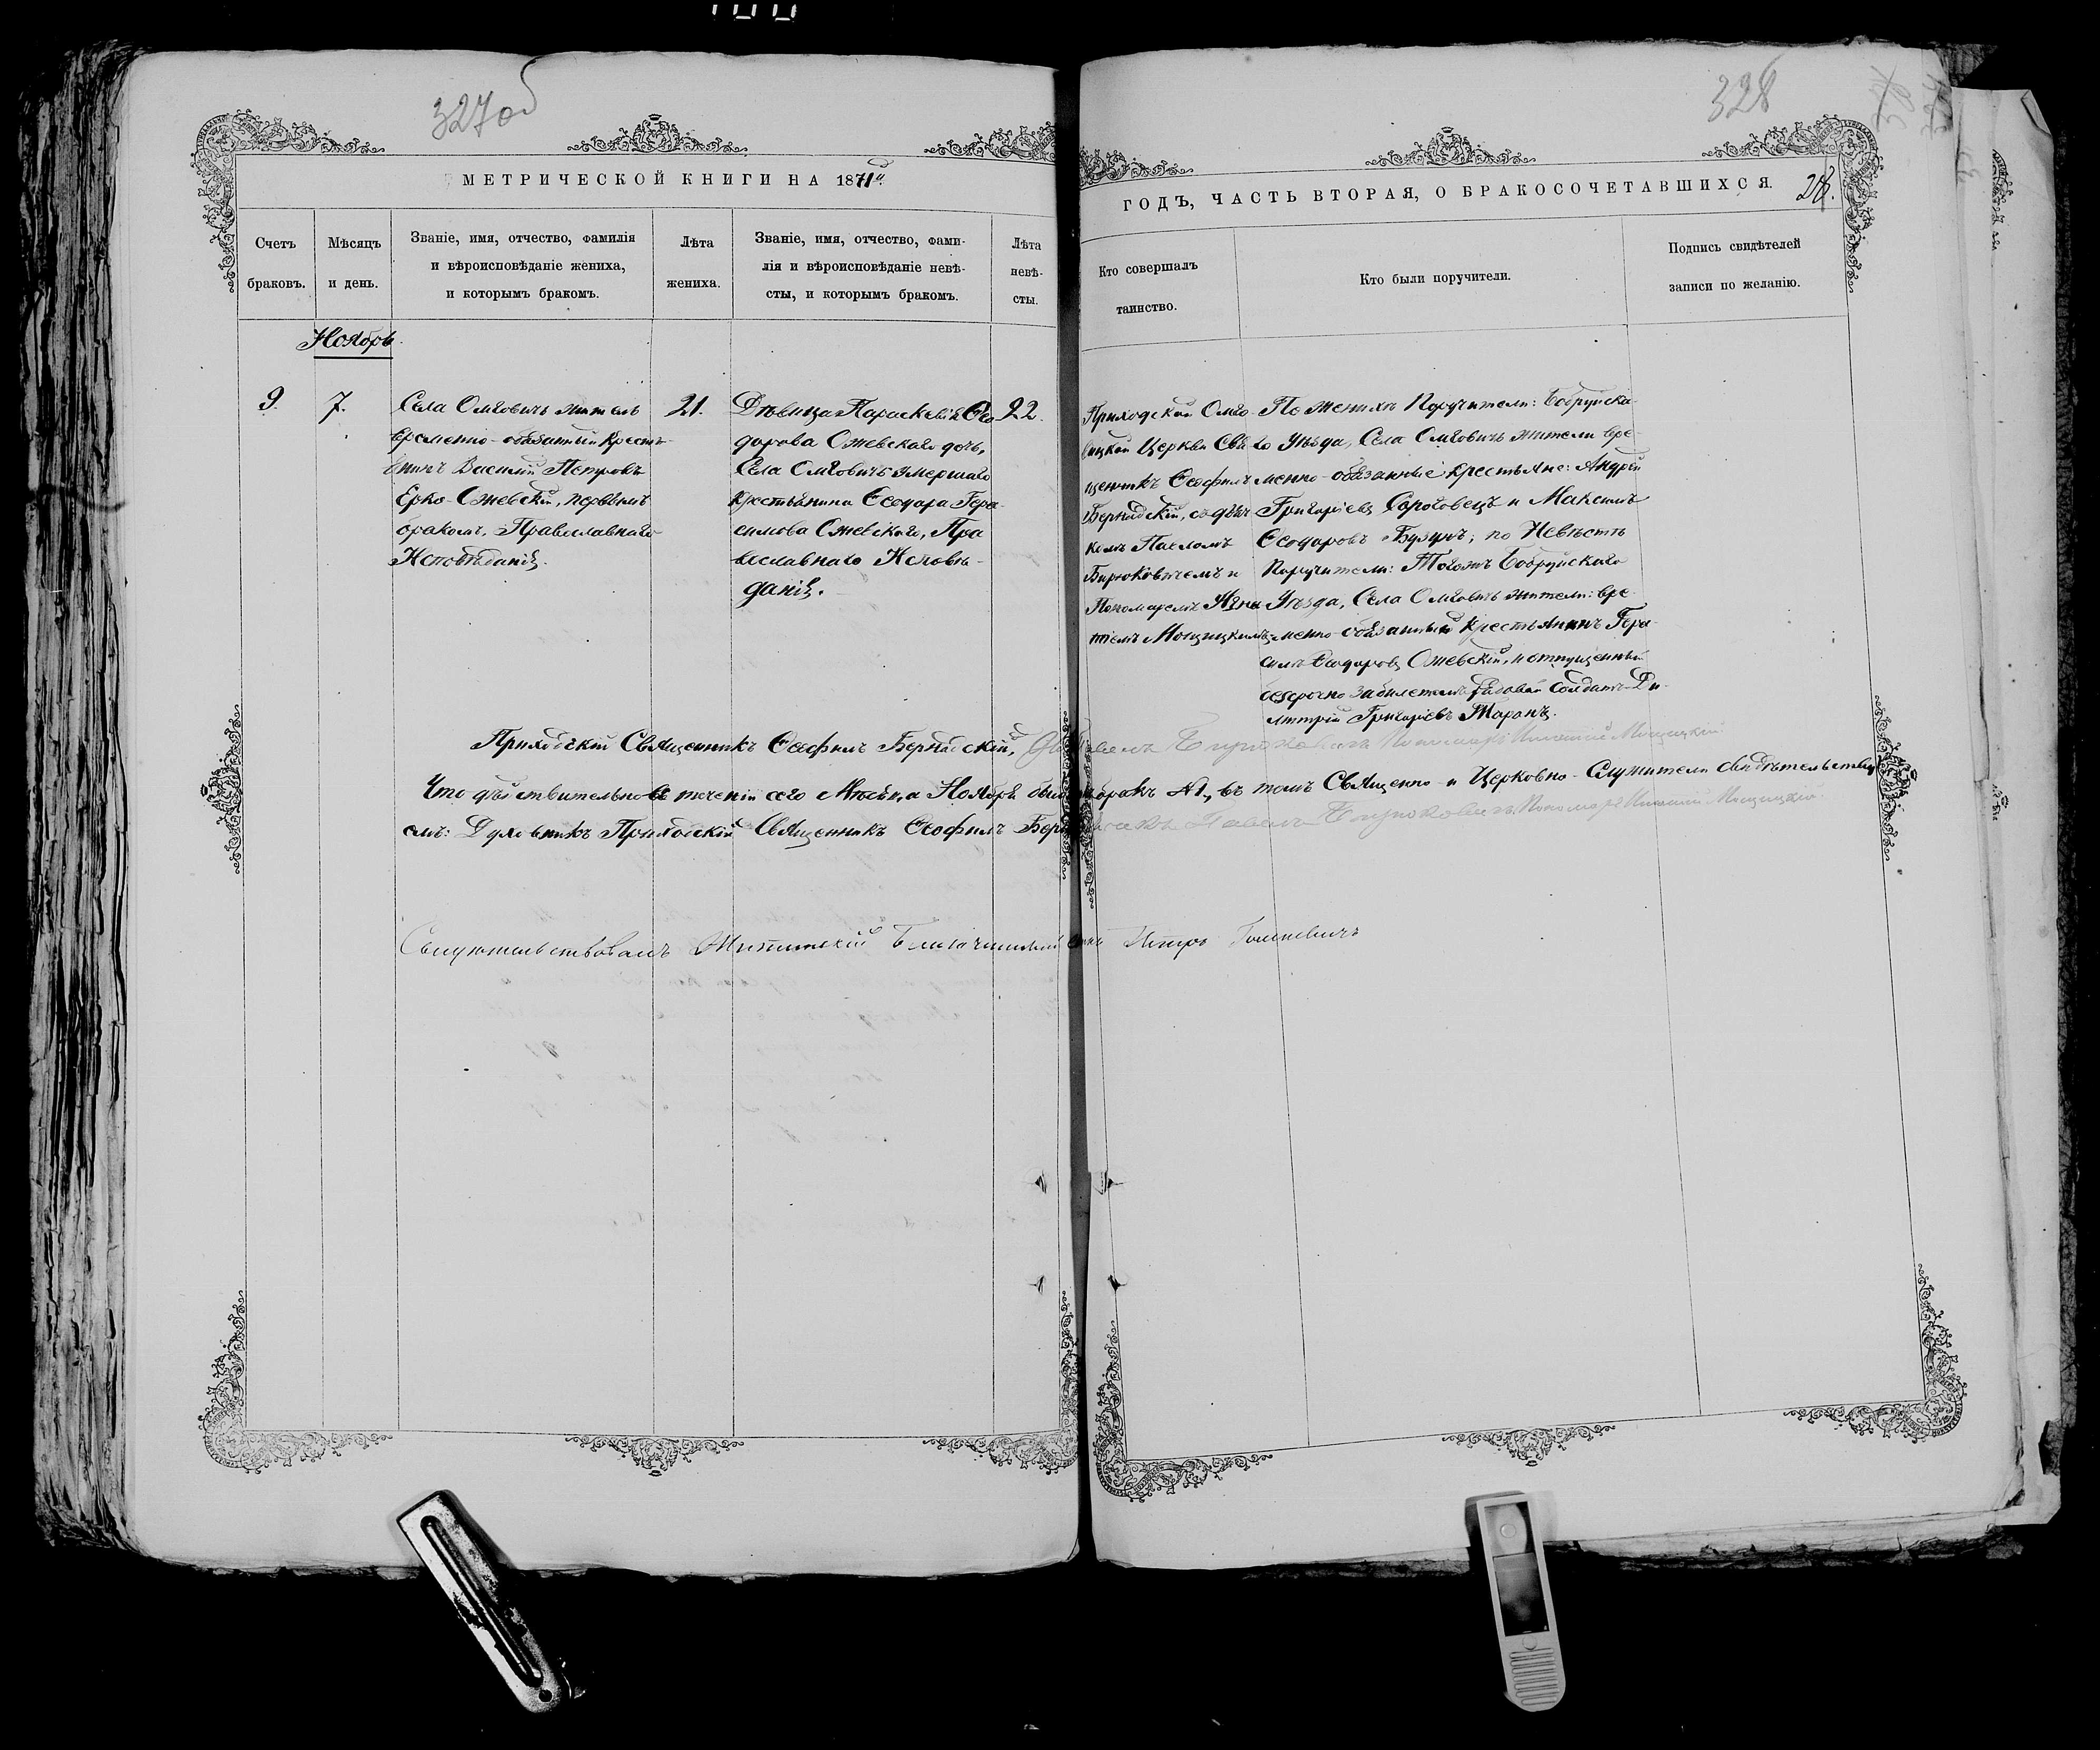 327об
328
МЕТРИЧЕСКОЙ КНИГИ НА 1871й
ГОДЪ, ЧАСТЬ ВТОРАЯ, О БРАКОСОЧЕТАВШИХСЯ.
28.
Счетъ
браковъ.
Мѣсяцъ
и день.
Званіе, имя, отчество, фамилія
и вѣроисповѣданіе жениха,
и которымъ бракомъ.
Лѣта
жениха.
Званіе, имя, отчество, фами-
лія и вѣроисповѣданіе невѣ-
сты, и которымъ бракомъ.
Лѣта
невѣ-
сты.
Кто совершалъ
таинство.
Кто были поручители.
Подпись свидѣтелей
записи по желанію.
Ноябрь.
9.
7.
Села Омговичъ житель
временно-обязанный Кресть-
янинъ Василій Петровъ
Ерко-Ожевскій, первымъ
бракомъ, Православнаго
Исповѣданія.
21.
Дѣвица Параскевія Ѳео
дорова Ожевскаго дочь,
Села Омговичъ умершаго
Крестьянина Ѳеодора Гера-
симова Ожевскаго, Пра
вославнаго Исповѣ-
данія.
22.
Приходской Омго-
вицкой Церкви Свя
щенникъ Ѳеофилъ
Бернадскій, съ дья
комъ Павломъ
Бирюковичемъ и
Пономаремъ Игна
тіемъ Мощицкимъ
По женихѣ Поручители: Бобруйска-
го Уѣзда, Села Омговичъ жители вре-
менно-обязанные крестьяне: Андрей
Григорьевъ Сороговецъ и Максимъ
Ѳеодоровъ Бузунъ; по Невѣстѣ
Поручители: Тогожъ Бобруйскаго
Уѣзда, Села Омговичъ жители: вре-
менно-обязанный Крестьянинъ Гера-
симъ Ѳеодоровъ Ожевскій, и отпущенный
безсрочно за билетомъ рядовой Солдатъ Ди-
митрій Григорьевъ Таранъ.
Приходскій Священникъ Ѳеофилъ Бернадскій, Павелъ Бирюковичъ Пономарь Игнатій Мощицкій
Что дѣйствительно въ теченіи сего Мѣсяца Ноября было бракъ №1, въ томъ Священно- и Церковно-Служители свидѣтельству
емъ: Духовникъ Приходскій Священникъ Ѳеофилъ Павелъ Бирюковичъ Пономарь Игнатій Мощицкій
Свидѣтельствовалъ Благочинный Петръ